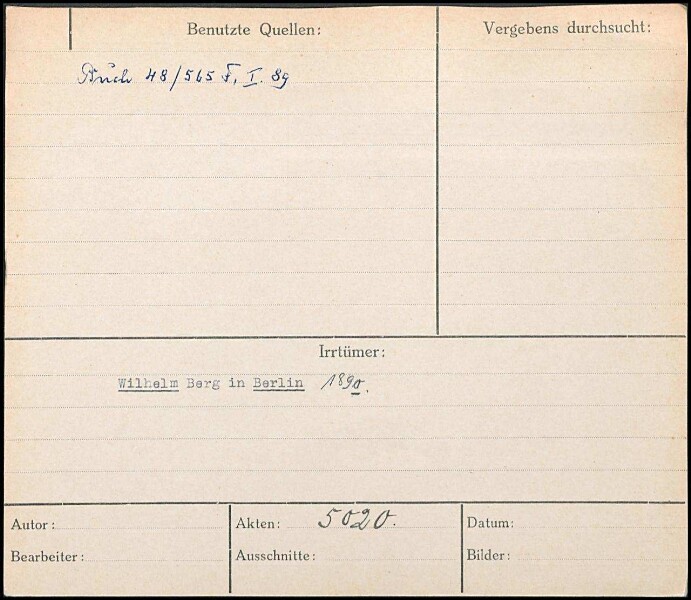 Benutzte Quellen:
Vergebens durchsucht:
Buch 48/565 F, I. 89
Irrtümer:
Wilhelm Berg in Berlin 1890.
Autor:
Akten: 5020.
Datum:
Bearbeiter:
Ausschnitte:
Bilder: